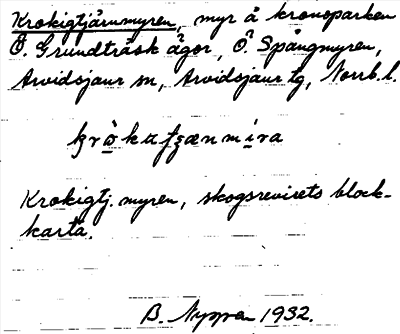 Krokigtjärnmyren, myr å kronoparken
Ö. Grundträsk ägor, Ö. Spångmyren,
Arvidsjaur sn, Arvidsjaur tg, Norrb. l.
Krokigtj. myren, skogsrevirets block-
karta.
B. Nyssen 1932.